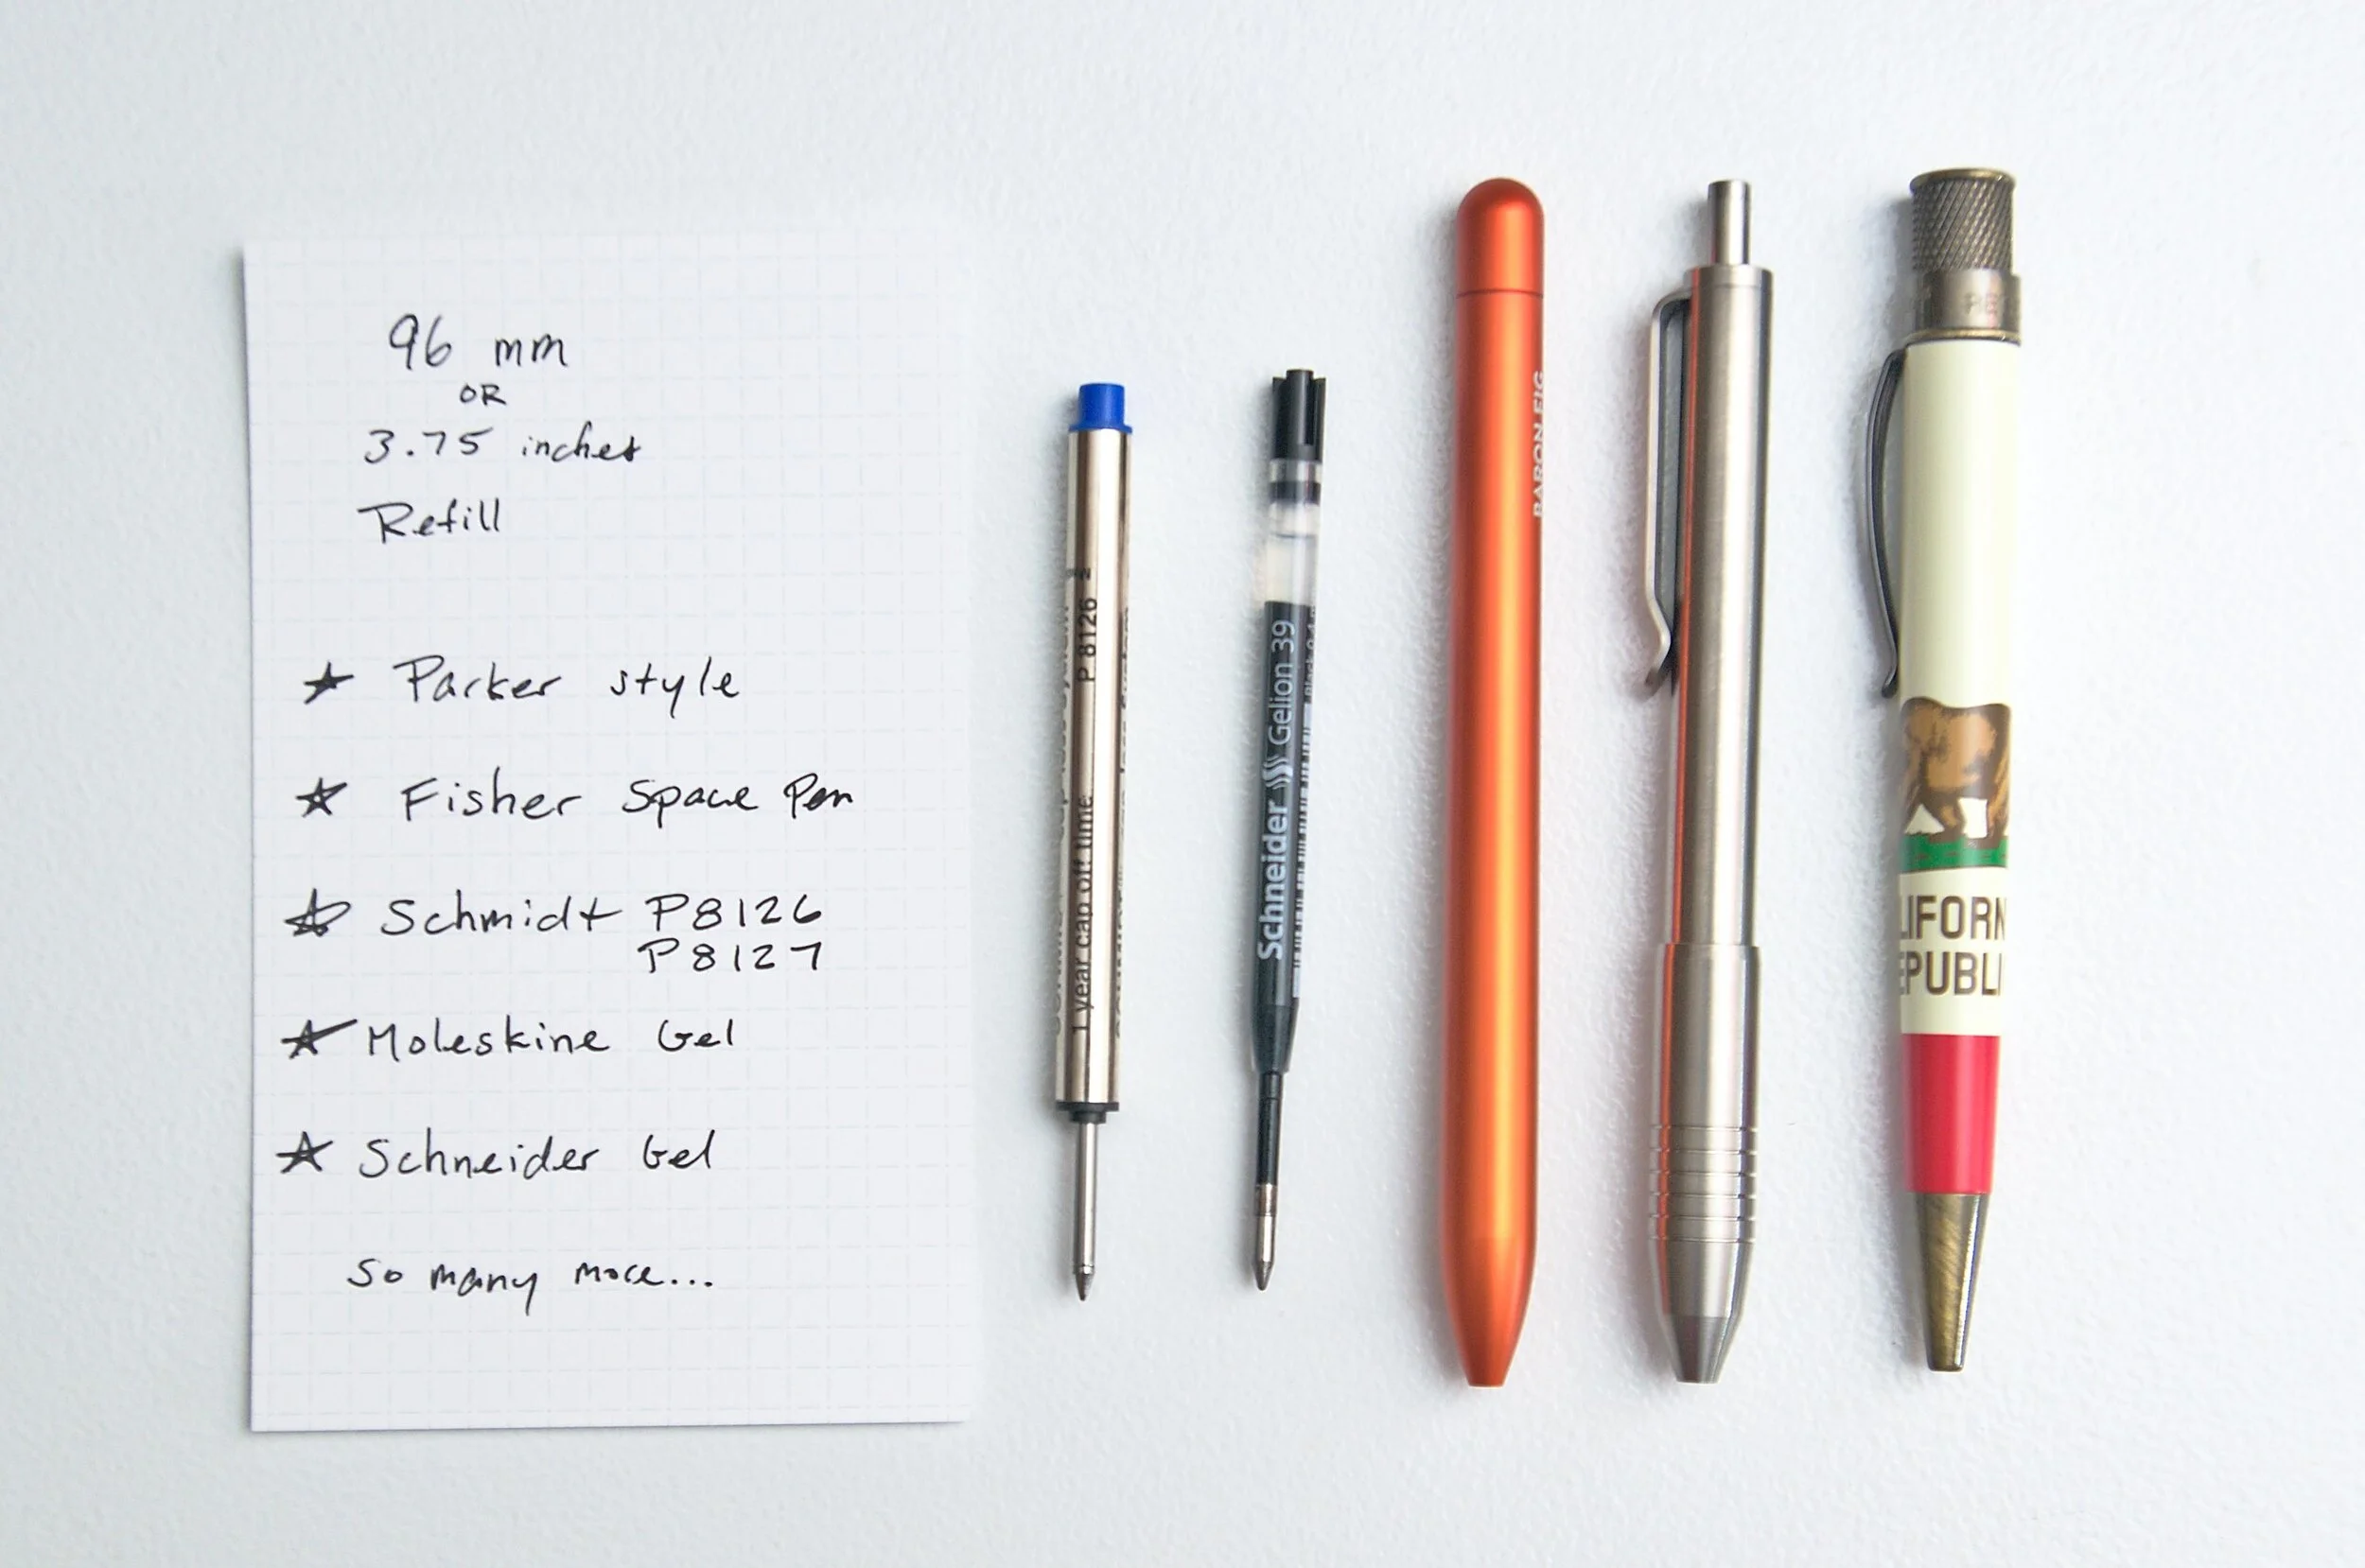 96 mm
OR
3.75 inches
Refill
Parker style
Fisher Space Pen
Schmidt P8126
P8127
Moleskine Gel
Schneider Gel
So many more...
P 8126
1 year cap off time
Schneider Gelion 39
BARON FIG
LIFORN
EPUBLI